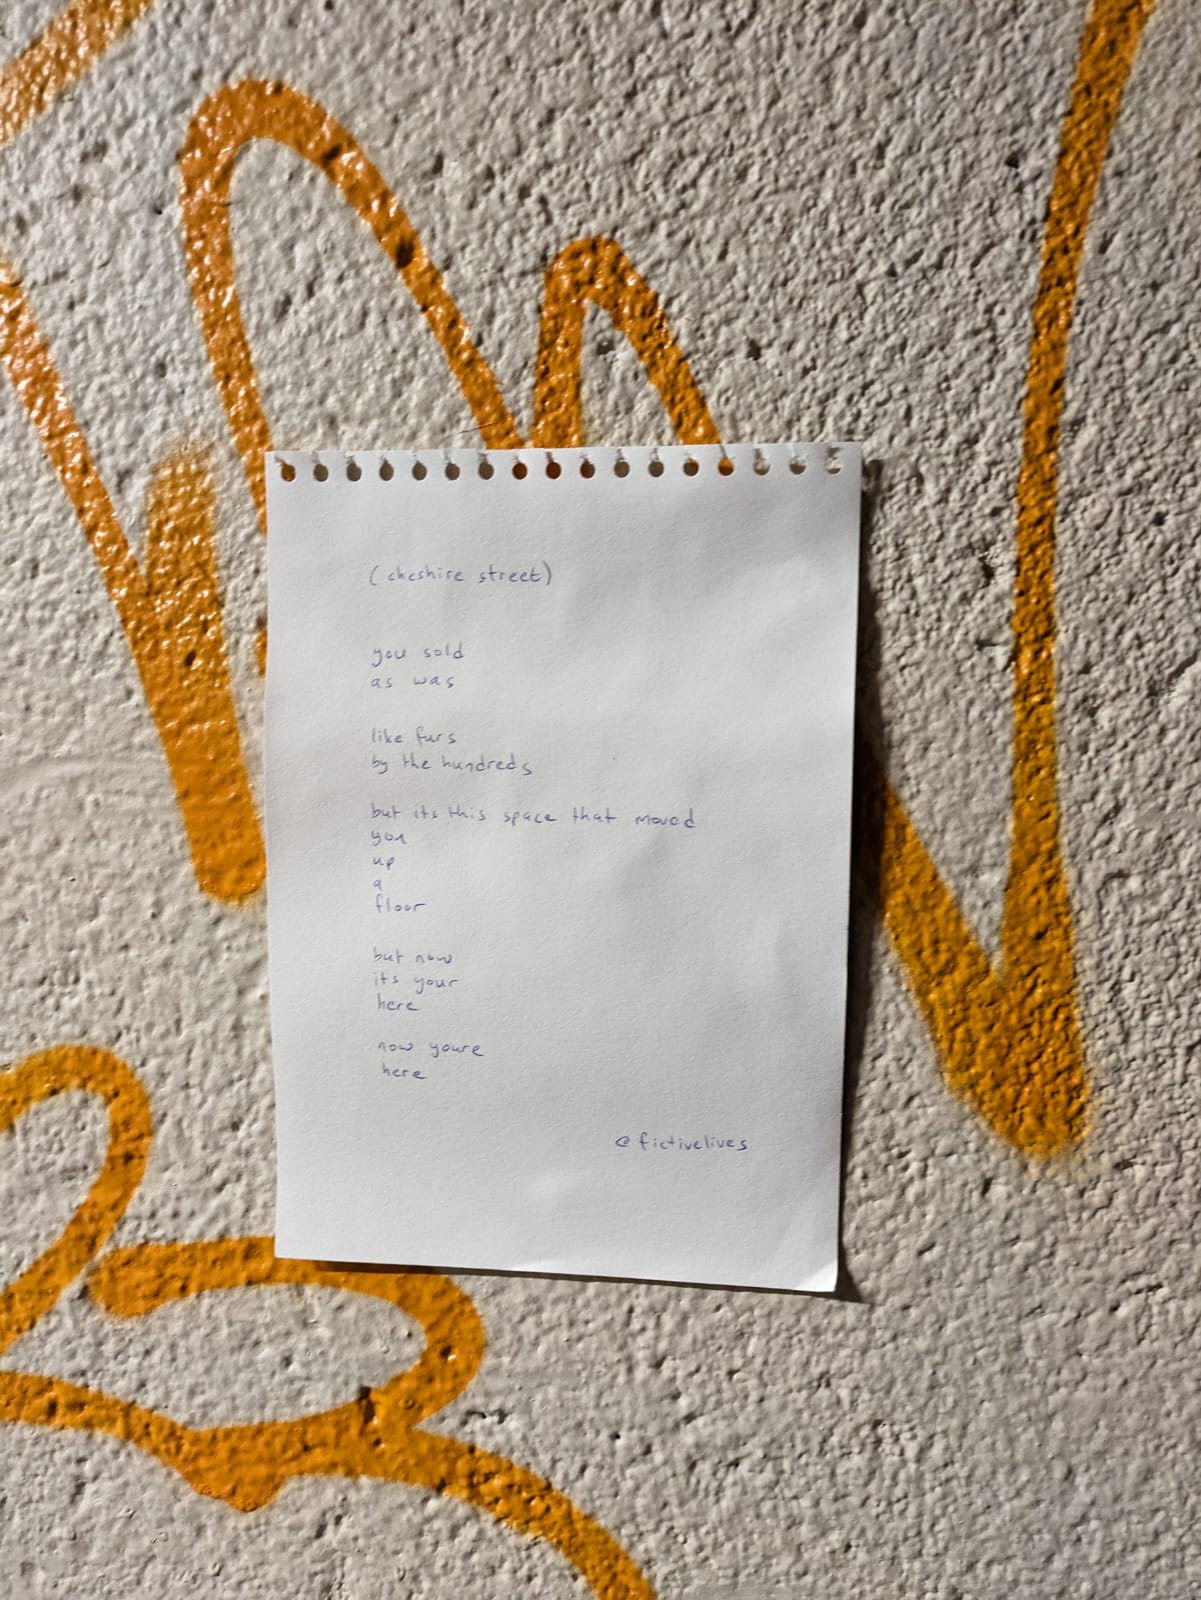 (cheshire street)
you sold
as was
like furs
by the hundreds
but its this space that moved
you
up
a
floor
but now
its your
here
now youre
here
@fictivelives